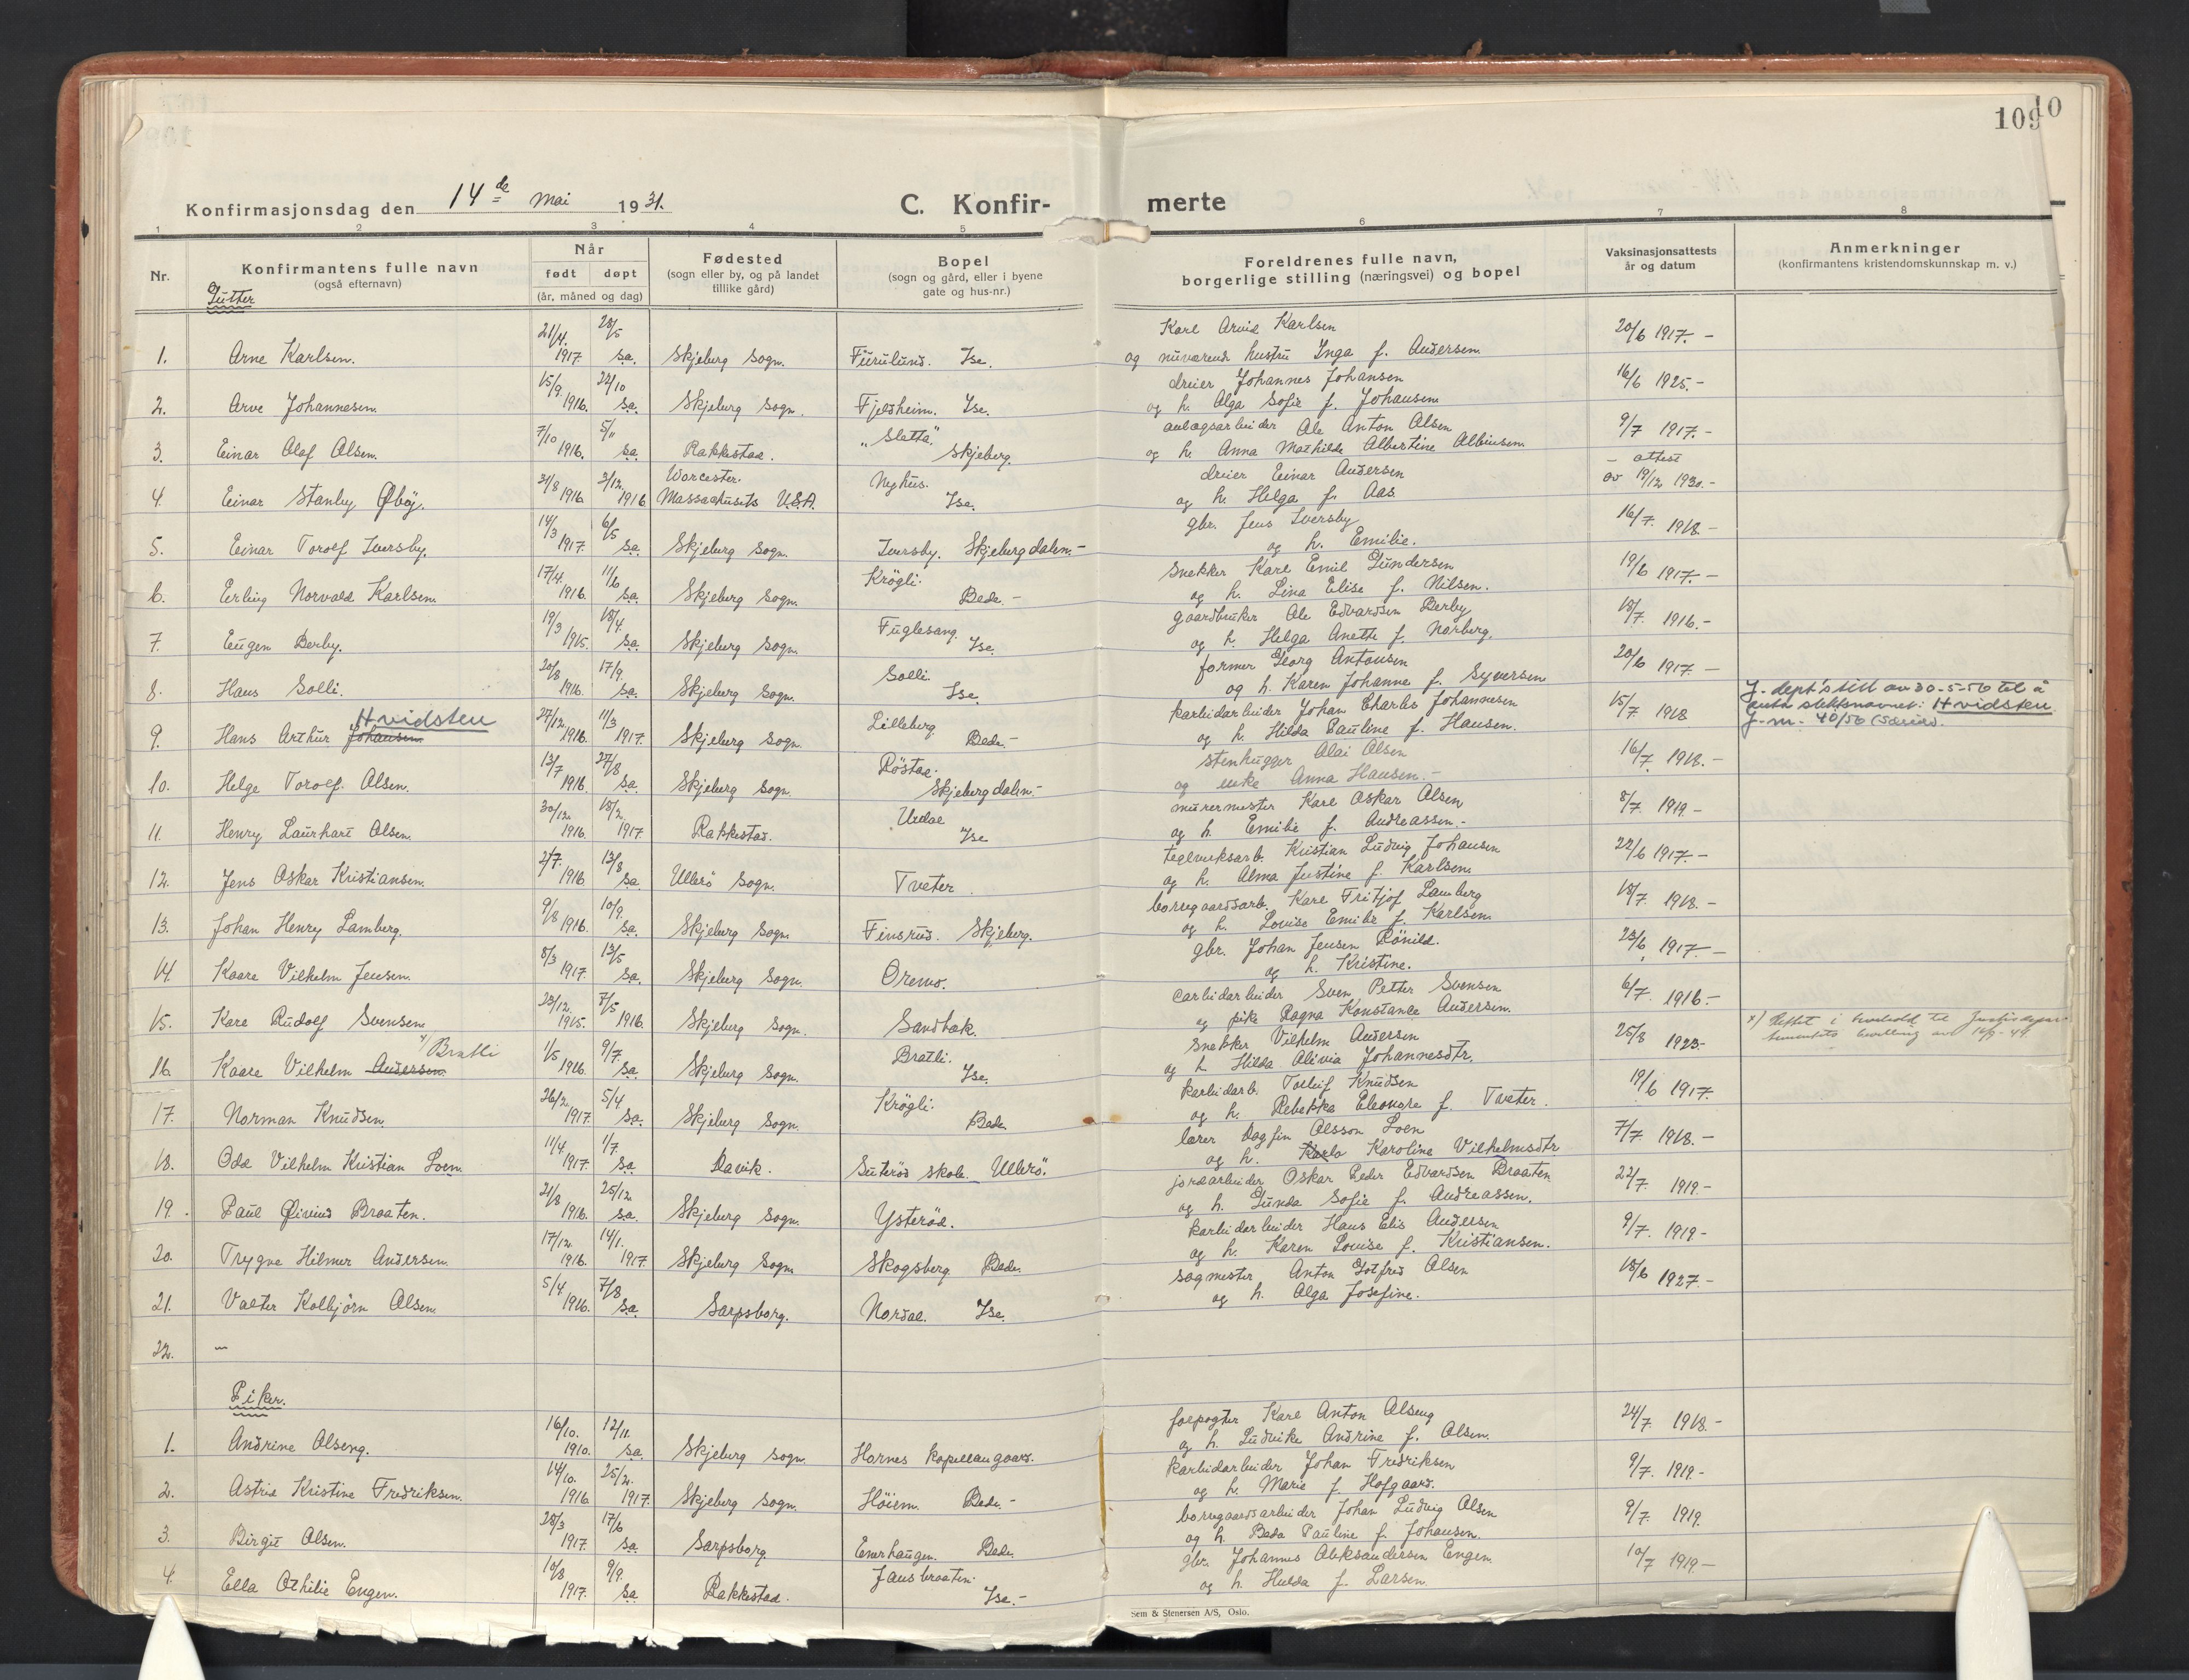 109
10
Konfirmasjonsdag den 14de mai 1931.
C. Konfir-
merte
1 2 3 4 5 6 7 8
Nr.
Konfirmantens fulle navn
(også efternavn)
Når
født døpt
(år, måned og dag)
Fødested
(sogn eller by, og på landet
tillike gård)
Bopel
(sogn og gård, eller i byene
gate og hus-nr.)
Foreldrenes fulle navn,
borgerlige stilling (næringsvei) og bopel
Vaksinasjonsattests
år og datum
Anmerkninger
(konfirmantens kristendomskunnskap m. v.)
Gutter
21/4. 28/5 Karl Arvid Karlsen 20/6 1917.-
1. Arne Karlsen. 1917 s.a. Skjeberg sogn. Furulund. Ise. og nuværende hustru Inga f. Andersen.
15/9. 22/10 dreier Johannes Johansen 16/6 1925.-
2. Arve Johannesen. 1916. s.a. Skjeberg sogn. Fjeldheim. Ise. og h. Olga Sofie f. Johansen
7/10 5/11 "Sletta" anlægsarbeider Ole Anton Olsen 9/7 1917.-
3. Einar Olaf Olsen. 1916. s.a. Rakkestad. Skjeberg. og h. Anna Mathilde Albertine Albinsen.
31/8 3/12. Worcester. Nyhus. dreier Einar Andersen - attest
4. Einar Stanley Øbøy. 1916 1916 Massachusets U.S.A. Ise. og h. Helga f. Aas av 19/12 1930.-
14/3 6/5 gbr. Jens Iversby 16/7. 1918.-
5. Einar Torolf Iversby. 1917. s.a. Skjeberg sogn. Iversby. Skjebergdalen.- og h. Emilie.
17/4. 11/6 Krøgli. Snekker Karl Emil Gundersen 19/6 1917.-
6. Erling Norvald Karlsen. 1916. s.a. Skjeberg sogn. Bede.- og h. Lina Elise f. Nilsen.
19/3 18/4. Fuglesang. gaardbruker Ole Edvardsen Berby 18/7. 1916.-
7. Eugen Berby. 1915. s.a. Skjeberg sogn. Ise. og h. Helga Anette f. Norberg.
20/8 17/9. Solli. former Georg Antonsen 20/6 1917.-
8. Hans Solli. 1916. s.a. Skjeberg sogn. Ise. og h. Karen Johanne f. Syversen
Hvidsten 27/12. 11/3 Lilleberg. karbidarbeider Johan Charles Johannesen 15/7. 1918
9. Hans Arthur Johansen 1916. 1917. Skjeberg sogn. Bede.- og h. Hilda Pauline f. Hansen.
J.-dept's till av 30-5-56 til å
slektsnavnet: Hvidsten
J-nr. 40/56
13/7 27/8 Røstad. stenhugger Olai Olsen 16/7. 1918.-
10. Helge Torolf Olsen. 1916. s.a. Skjeberg sogn. Skjebergdalen.- og enke Anna Hansen.-
30/12. 18/2. Urdal murermester Karl Oskar Olsen 8/7. 1919-
11. Henry Laurhart Olsen. 1916. 1917 Rakkestad. Ise og h. Emilie f. Andreassen.-
2/7. 13/8 teglverksarb. Kristian Ludvig Johansen 22/6 1917.-
12. Jens Oskar Kristiansen. 1916. s.a. Ullerø sogn. Tveter. og h. Alma Justine f. Karlsen.
9/8 10/9. borregaardsarb. Karl Fritjof Lamberg 18/7. 1918.-
13. Johan Henry Lamberg. 1916. s.a. Skjeberg sogn Finsrud. Skjeberg. og h. Lovise Emilie f. Karlsen.
8/3 13/5 gbr. Johan Jensen Rønild. 23/6 1917.-
14. Kaare Vilhelm Jensen. 1917. s.a. Skjeberg sogn. Oremo. og h. Kristine.
23/12. 7/5 carbidarbeider Sven Petter Svensen 6/7. 1916-
15. Kare Rudolf Svensen. 1915. 1916. Skjeberg sogn. Sandbæk. og pike Ragna Konstance Andersen.
x) Bratli 1/5 9/7. Bratli. Snekker Vilhelm Andersen 25/8 1923.-
16. Kaare Vilhelm Andersen. 1916. s.a. Skjeberg sogn. Ise. og h Hilda Olivia Johannesdtr.
x) Rettet i henhold til Justisdepar-
tementets bevilling av 16/9-44.
26/2. 5/4 Krøgli. karbidarb. Tolleif Knudsen 19/6 1917.
17. Norman Knudsen. 1917. s.a. Skjeberg sogn. Bede. og h. Rebekka Eleonore f. Tveter.
11/4. 1/7. lærer Dagfin Olsson Loen 7/7. 1918.-
18. Odd Vilhelm Kristian Loen. 1917. s.a Davik. Suterød skole. Ullerø. og h. Karolina Vilhelmsdtr
21/8 25/12. jordarbeider Oskar Peder Edvardsen Braaten 22/7. 1919.-
19. Paul Øivind Braaten. 1916. s.a. Skjeberg sogn. Ysterød. og h. Gunda Sofie f. Andreassen.
17/12. 14/1. karbidarbeider Hans Elis Andersen 9/7. 1919-
20. Trygve Hilmer Andersen. 1916. 1917. Skjeberg sogn Skogsberg Bede. og h. Karen Lovise f. Kristiansen.
5/4 7/8 sagmester Anton Gotfred Olsen 18/6 1927.-
21. Valter Kolbjørn Olsen. 1916. s.a. Sarpsborg. Nordal. Ise. og h. Olga Josefine.
22. -
Piker.
16/10. 12/11. forpagter Karl Anton Olseng 24/7. 1918.-
1. Andrine Olseng. 1910. s.a Skjeberg sogn Hornes kapellangaard. og h. Ludvika Andrine f. Olsen.
14/10. 25/2. karbidarbeider Johan Fredriksen 9/7. 1919-
2. Astrid Kristine Fredriksen. 1916 1917. Skjeberg sogn. Høiem. Bede.- og h. Marie f. Hofgaard.
28/3 17/6 borregaardsarbeider Johan Ludvig Olsen 9/7. 1919.
3. Birgit Olsen. 1917. s.a. Sarpsborg Enerhaugen. Bede. og h. Beda Pauline f. Johansen.
10/8 9/9. Jansbraaten. gbr. Johannes Aleksandersen Engen. 10/7 1919-
4. Ella Othilie Engen. 1917. s.a Rakkestad. Ise.- og h. Hulda f. Larsen
Sem & Stenersen A/S, Oslo.